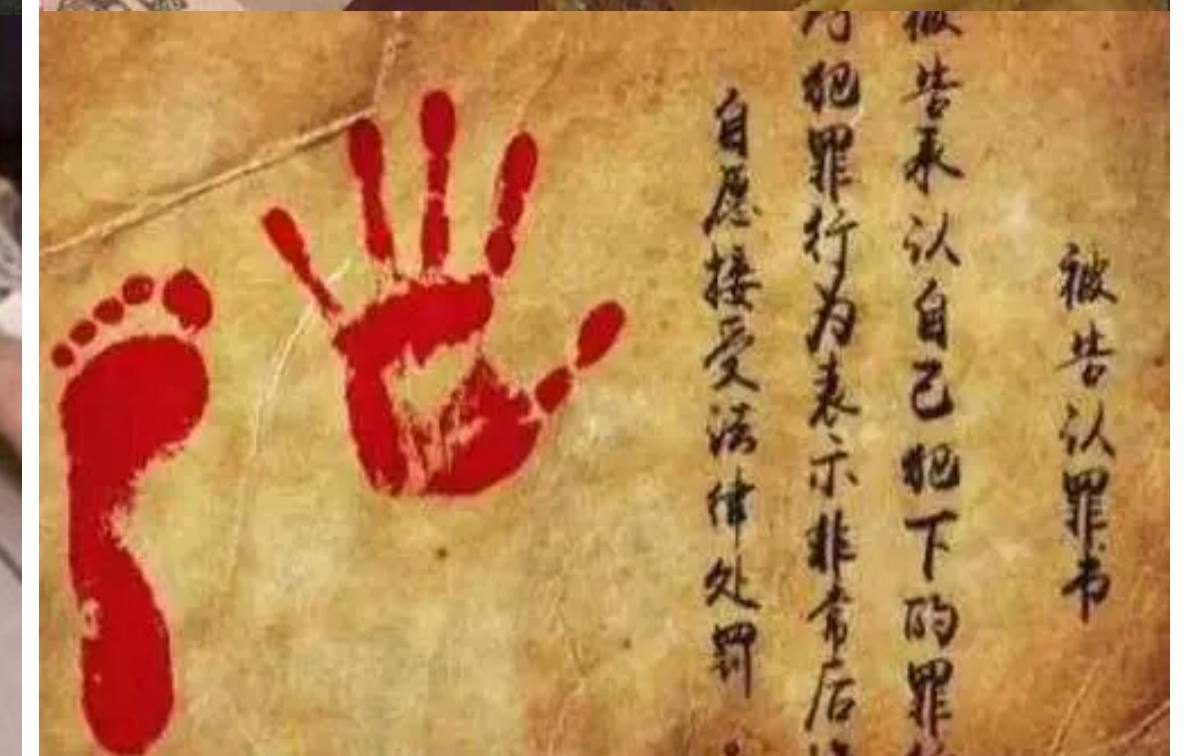 被告认罪书
被告承认自己犯下的罪
犯罪行为表示非常后
自愿接受法律处罚